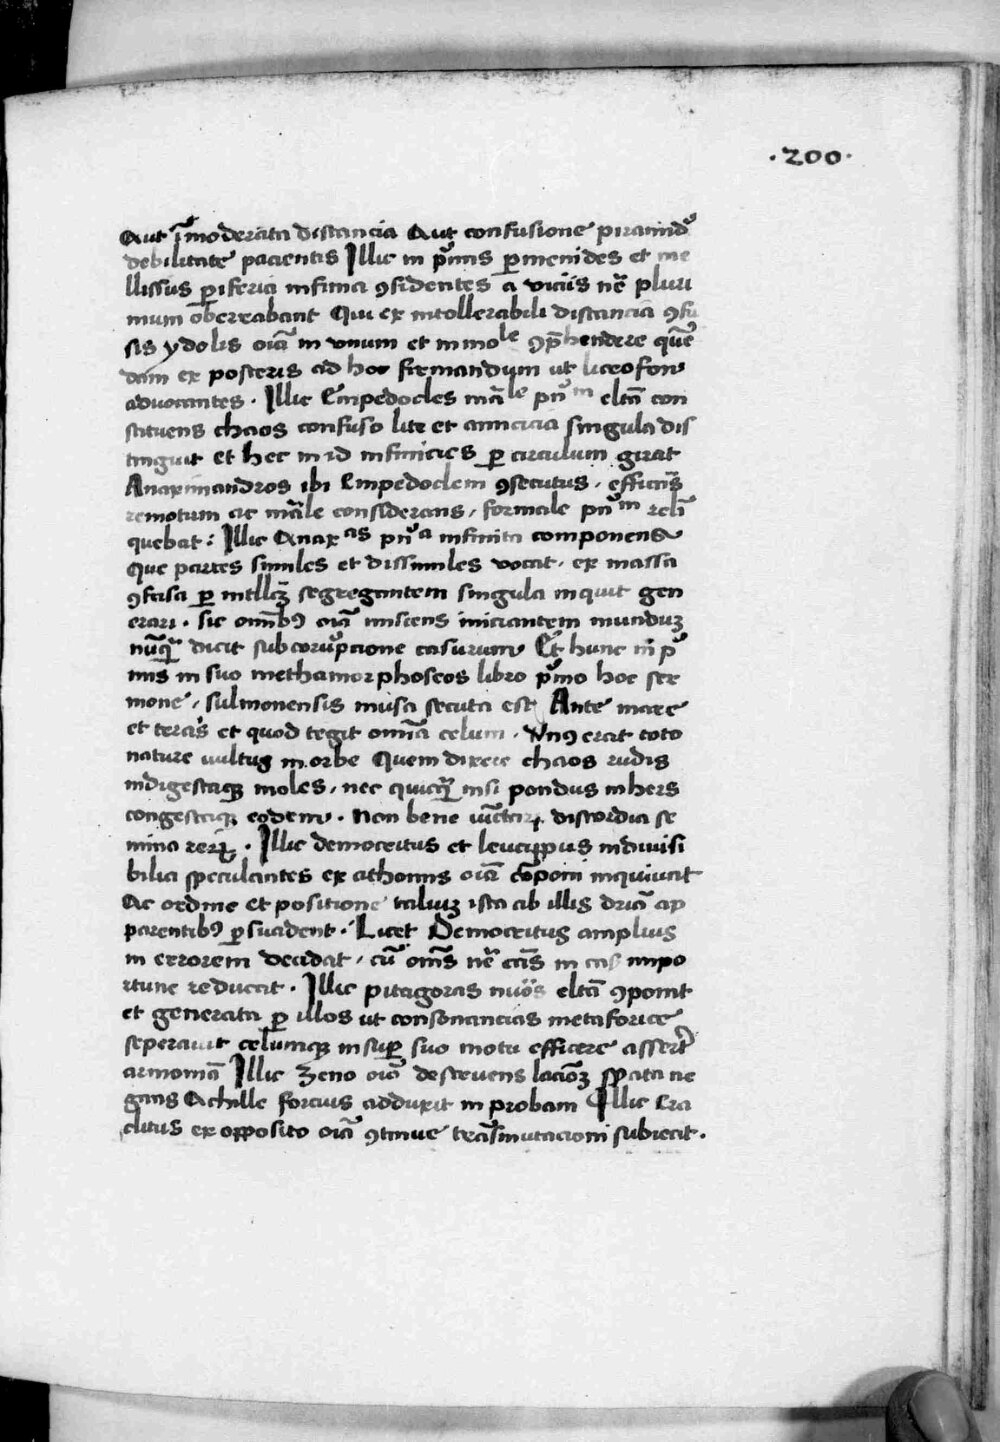 ·200·
Aut ı̄moderata distancia Aut confusione piramidū
debilitate pacientis Illic in pͥmis ꝑmenides et me
llissus ꝑiferia infima ꝯsidentes a viciis nr̄e pluri
mum oberrabant Qui ex intollerabili distancia ꝯfu
sis ydolis oīa in vnum et inmo^le ꝯp̄hendere
dam ex posteris ad hoc firmandum ut licofon
advocantes · Illic Empedocles mā^le pn^m eltā con
stituens chaos confuso lite et amicicia singula dis
tinguit et hec in id infinicies ꝑ circulum girat
Anaximandros ibi Empedoclem ꝯsecutus, efficiēs
remotum ac māle considerans, formale pn^m reli
quebat : Illic Anax^as pn^a infinita componens
Que partes similes et dissimiles vocat, ex massa
ꝯfusa ꝑ intllcꝫ segregantem singula inquit gen
erari · sic omībꝰ oīa miscens iniciantem munduꝫ
nūqꝫ dicit sub corupcione casurum Et hunc in pͥ
mis in suo methamorphoseos libro pͥmo hoc ser
mone, sulmonensis musa secuta est Ante mare
et terās et quod tegit omīa celum · Vnꝰ erat toto
nature uultus in orbe Quem dixere chaos rudis
indigestaqꝫ moles, nec quicqͣ nisi pondus inhers
congestaqꝫ eodem · Non bene iūctaꝝ discordia se
mina rerꝝ · Illic democritus et leucippus indiuisi
bilia speculantes ex athomis oīa cōponi inquiunt
Ac ordine et positione taliuꝫ ista ab illis dr̄iā ap
parentibꝰ ꝑsuadent · Licet Democritus amplius
in errorem decidat, cū om̄s nr̄e cās in cas inpo
rtune reducat · Illic pitagoras nūos eltā ꝯponit
et generata ꝑ illos ut consonancias metaforice
seperauit celumqꝫ insuꝑ suo motu efficere assert
armoniā Illic Zeno oīo destruens laciōꝫ spata ne
gans Achille forcius adduxit in probam Illic Era
clitus ex opposito oīa ꝯtinue trāsmutacioni subiecit.